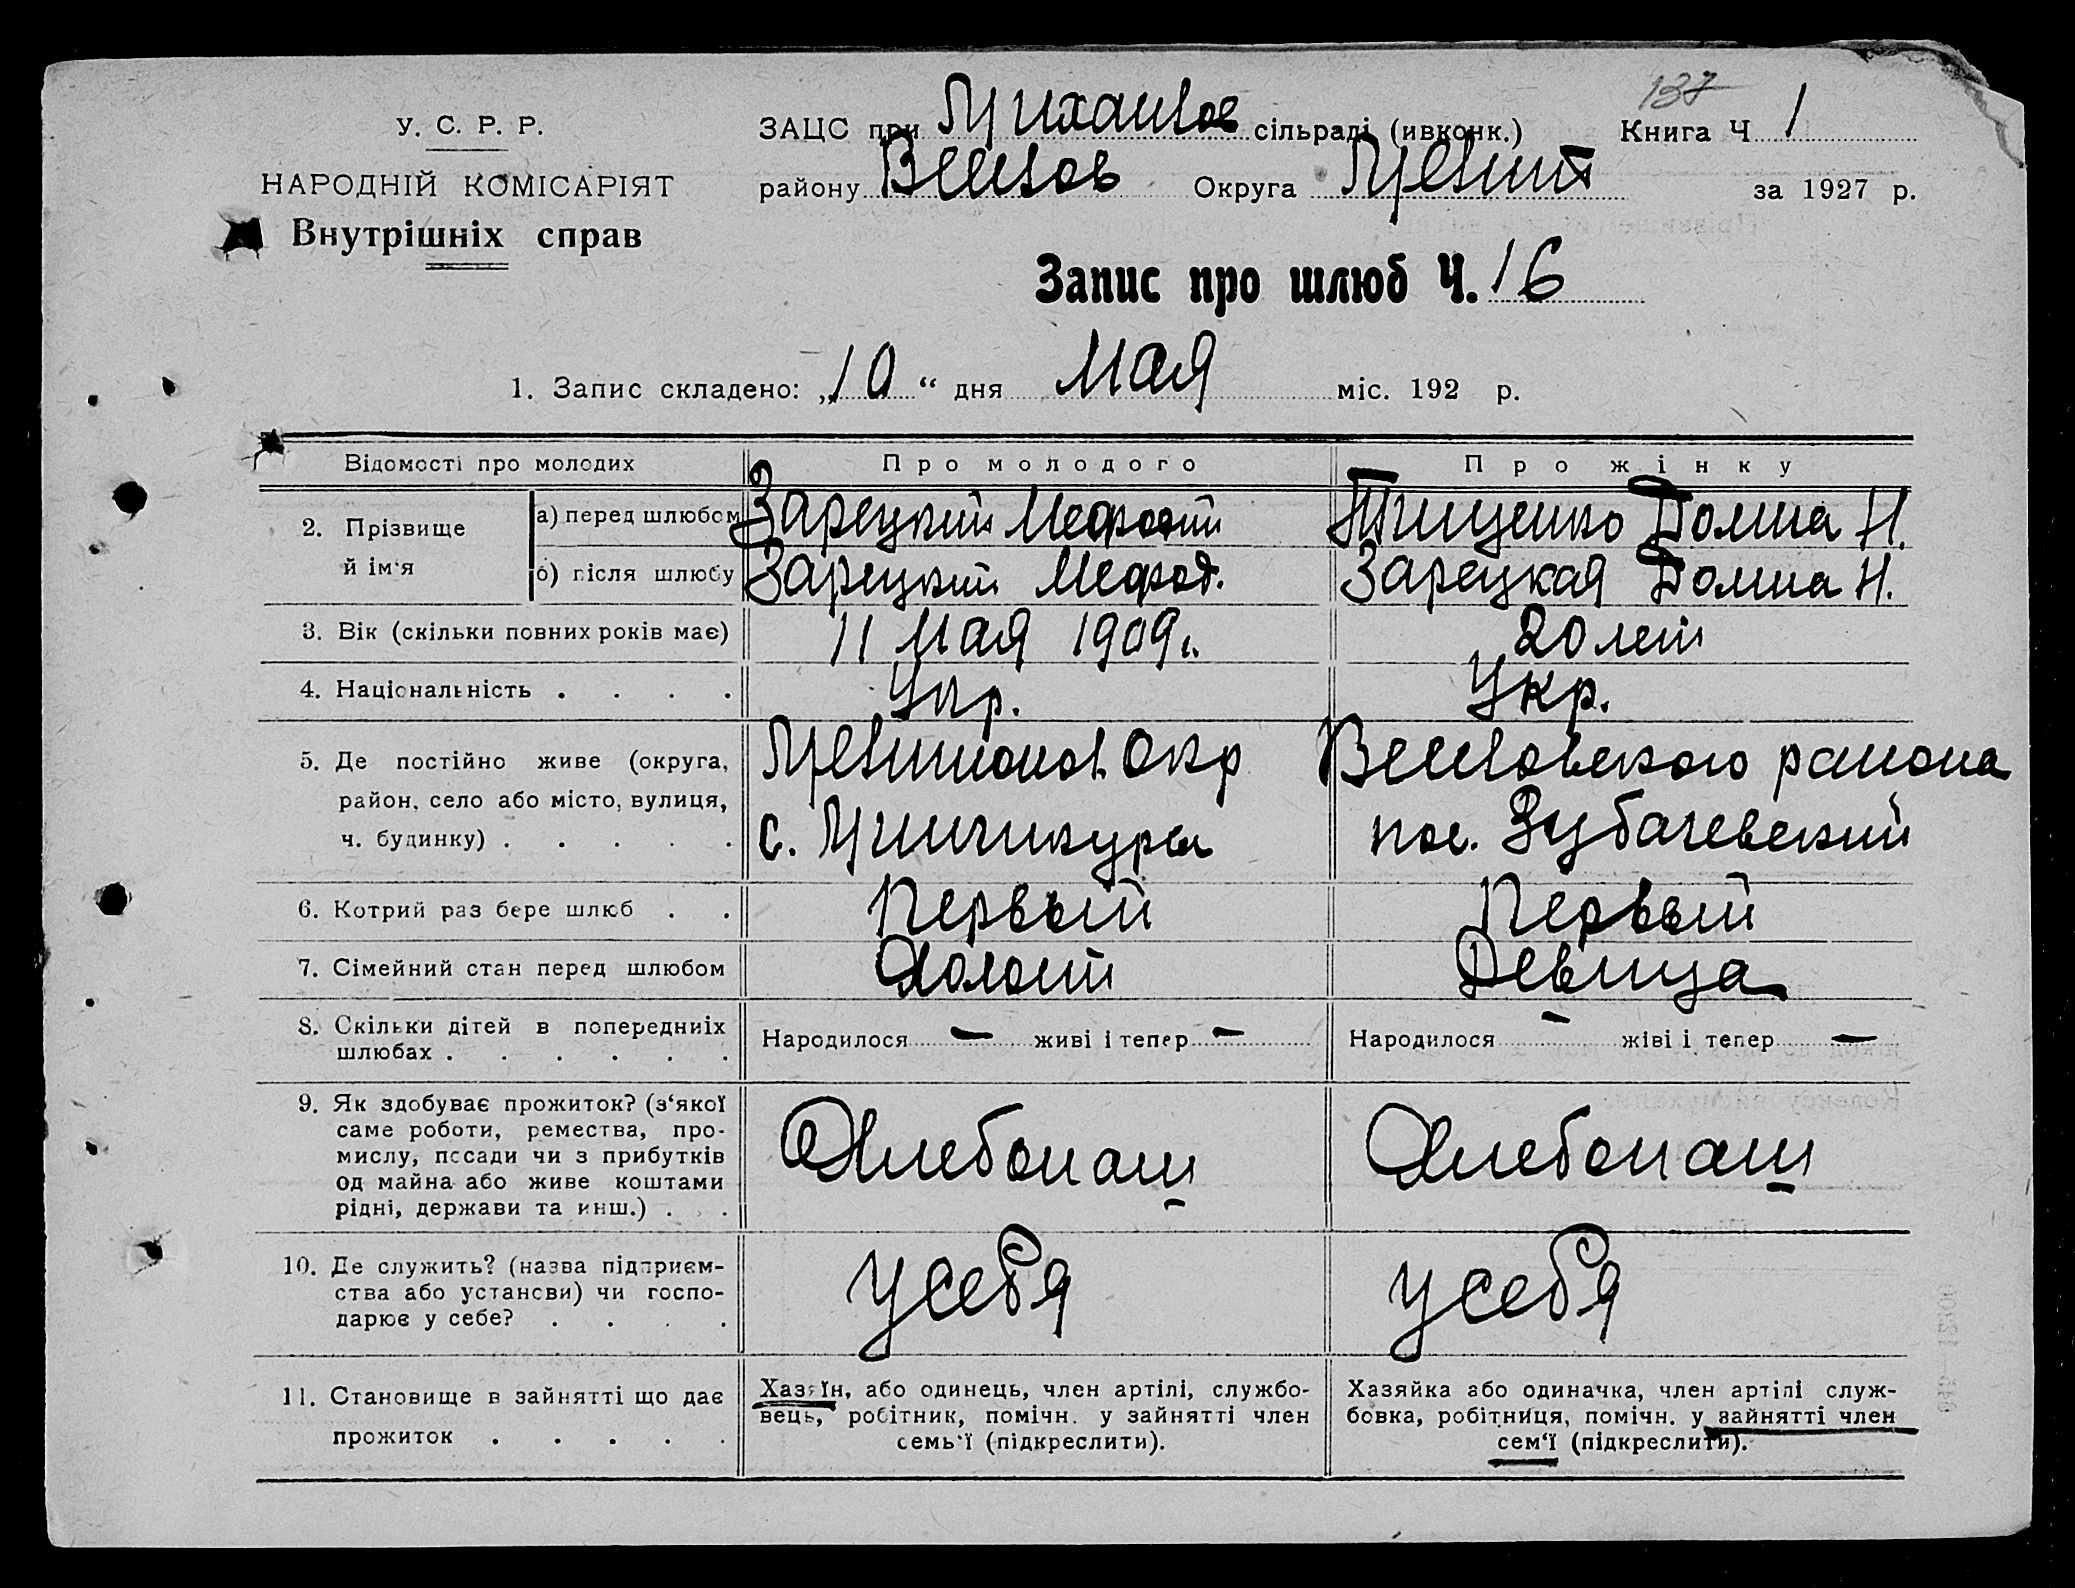 137
У. С. Р. Р.
НАРОДНІЙ КОМІСАРІЯТ
Внутрішніх справ
ЗАЦС при Михайлов сільраді (ивконк.) Книга Ч 1
району Весіолов Округа Меліт за 1927 р.
Запис про шлюб Ч. 16
1. Запис складено: „10“ дня мая міс. 192 р.
Відомості про молодих Про молодого Про жінку
2. Прізвище й ім'я
а) перед шлюбом Зарецкий Мефодий Тищенко Домна Н.
б) після шлюбу Зарецкий Мефод. Зарецкая Домна Н.
3. Вік (скільки повних років має) 11 мая 1909 г. 20 лет
4. Національність . . . . Укр. Укр.
5. Де постійно живе (округа, район, село або місто, вулиця, ч. будинку) . . . . .
Окр
с.
района
пос. Зубачевский
6. Котрий раз бере шлюб . . Первый Первый
7. Сімейний стан перед шлюбом Холост Девица
8. Скільки дітей в попередниіх шлюбах . . . . . . Народилося — живі і тепер — Народилося — жіві і тепер —
9. Як здобуває прожиток? (з'якої саме роботи, ремества, промислу, посади чи з прибутків од майна або живе коштами рідні, держави та инш.) . . . Хлебопаш Хлебопаш
10. Де служить? (назва підприємства або установи) чи господарює у себе? . . . . у себя у себя
11. Становище в зайнятті що дає прожиток . . . . .
Хазяїн, або одинець, член артілі, службовець, робітник, помічн. у зайнятті член семь'ї (підкреслити).
Хазяйка або одиначка, член артілі службовка, робітниця, помічн. у зайнятті член сем'ї (підкреслити).